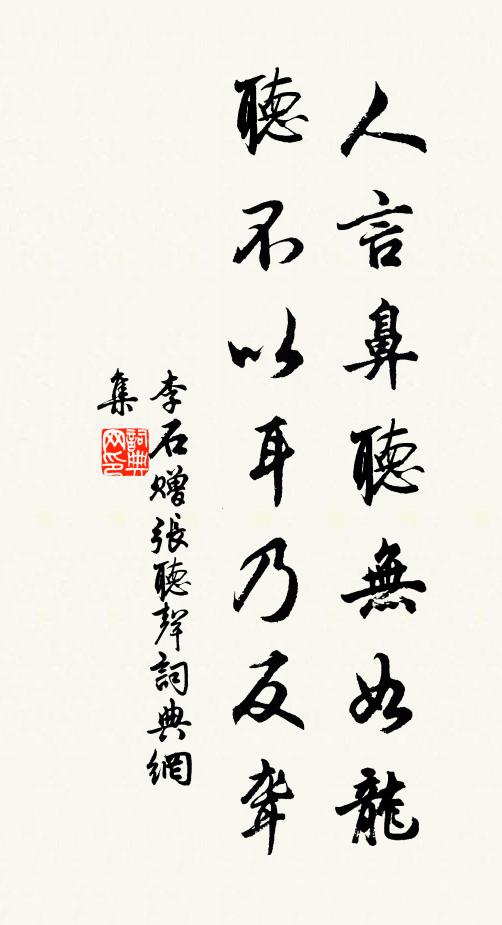 人言鼻聽無如龍
聽不以耳乃反聾
李石贈張聽聲詞典網
集
詞典網印